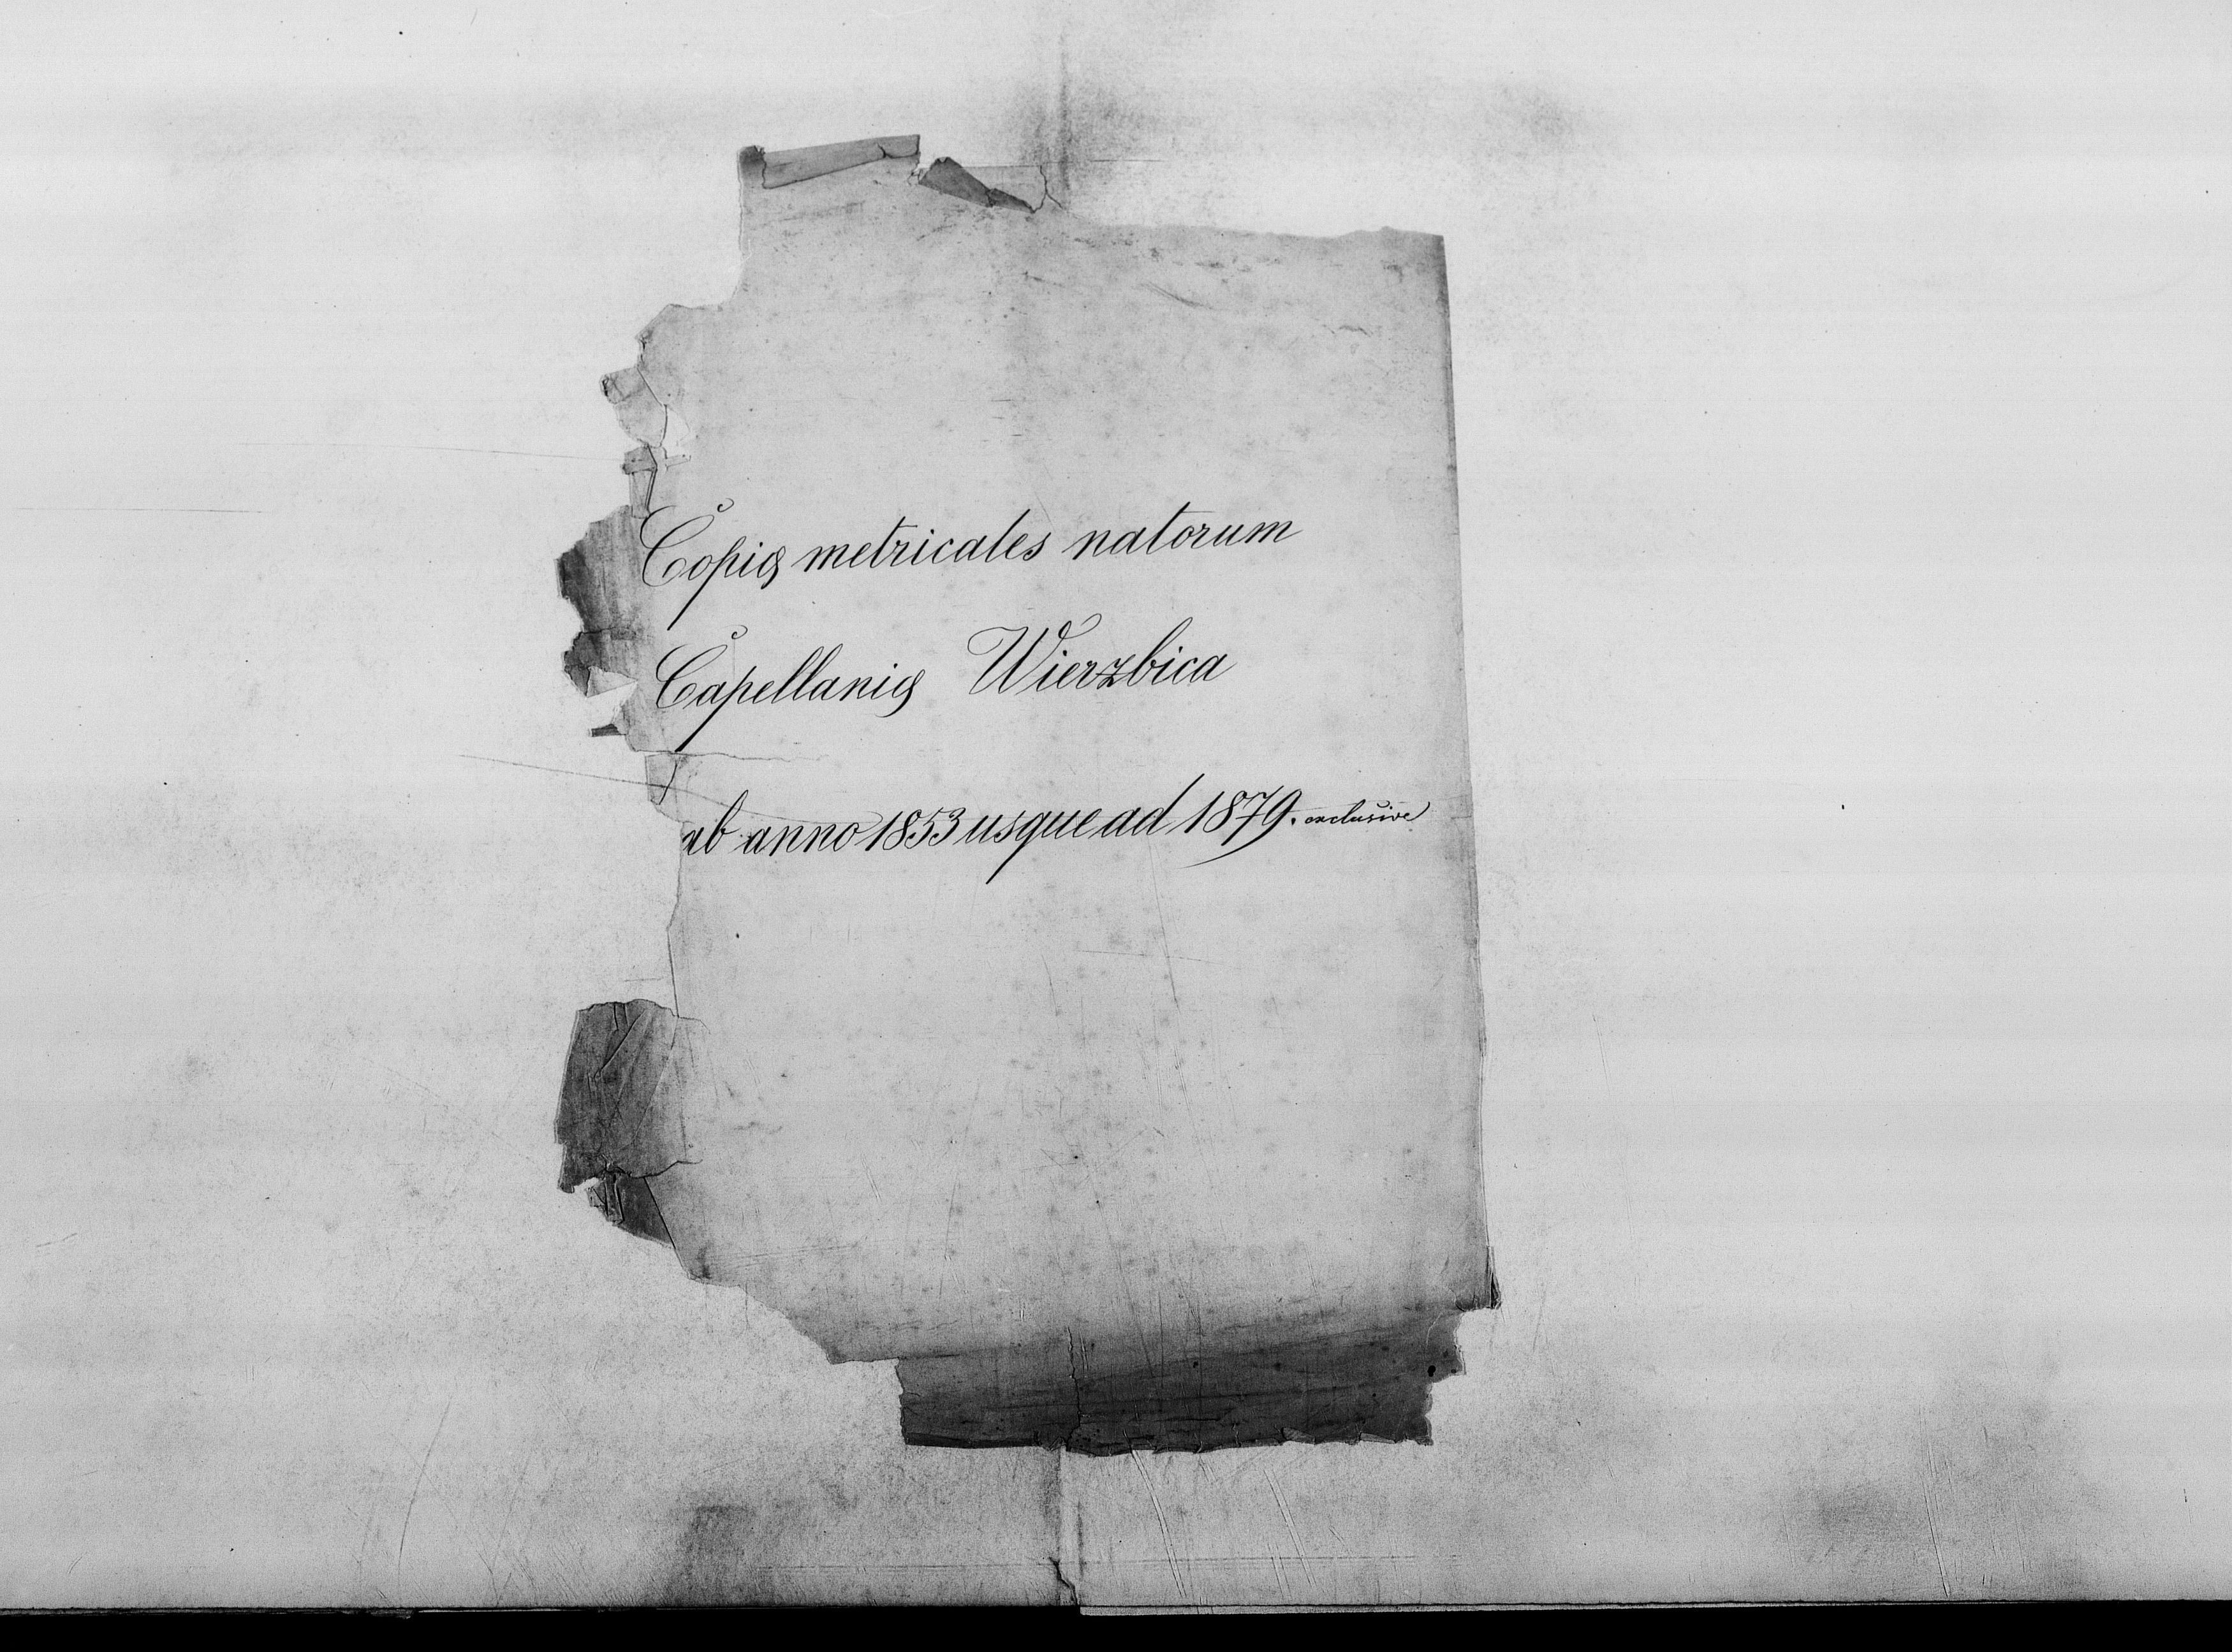 Copiæ metricales natorum
Capellaniæ Wierzbica
ab anno 1853 usque ad 1879. exclusive